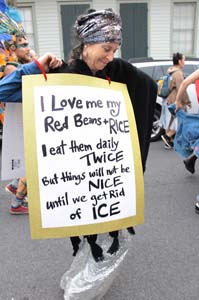 I Love me my
Red Beans + RICE
I eat them daily
TWICE
But things will not be
NICE
until we get Rid
of ICE